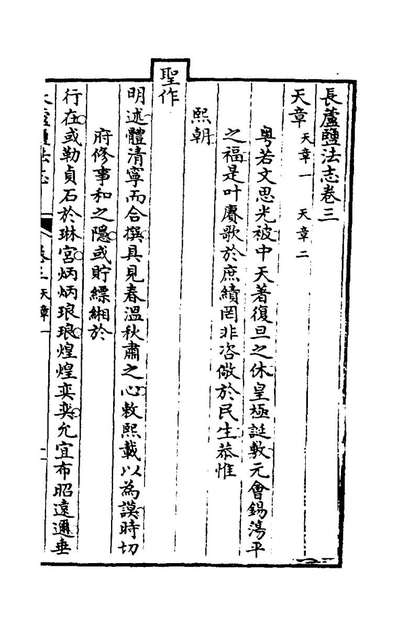 長蘆鹽法志卷三
天章 天章一 天章二
粤若文思光被中天著復旦之休皇極誕敷元會錫蕩平
之福是叶賡歌於庶績罔非咨儆於民生恭惟
熙朝
聖作
明述體清寧而合撰具見春溫秋肅之心敕熙載以為謨時切
府修事和之隱或貯縹緗於
行在或勒貞石於琳宮炳炳琅琅煌煌奕奕允宜布昭遠邇垂
鹽法志
卷三 天章一